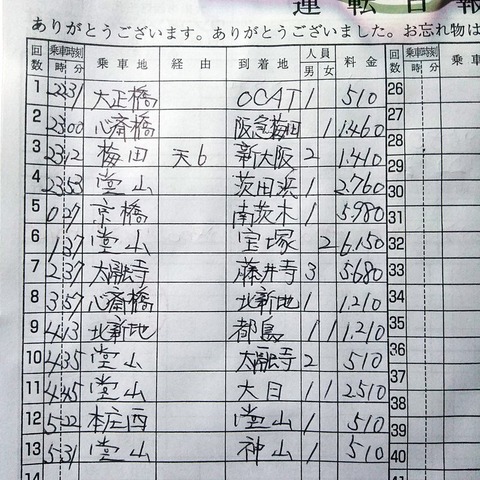 運転日報
ありがとうございます。ありがとうございました。お忘れ物は
回数 乗車時刻 時 分 乗車地 経由 到着地 人員 男 女 料金 乗車
1 22 31 大正橋 OCAT 1 510 26
2 23 00 心斎橋 阪急梅田 1 1.460 27
3 23 12 梅田 天6 新大阪 2 1.410 28
4 23 53 堂山 茨田浜 1 2.760 30
5 0 27 京橋 南茨木 1 5.980 31
6 1 37 堂山 宝塚 2 6.150 32
7 2 37 太融寺 藤井寺 3 5.680 33
8 3 57 心斎橋 北新地 1 1.210 34
9 4 13 北新地 都島 1 1 1.210 35
10 4 35 堂山 太融寺 2 510 36
11 4 45 堂山 大日 1 1 2510 37
12 5 22 本庄西 堂山 1 510 39
13 5 31 堂山 神山 1 510 40
29
38